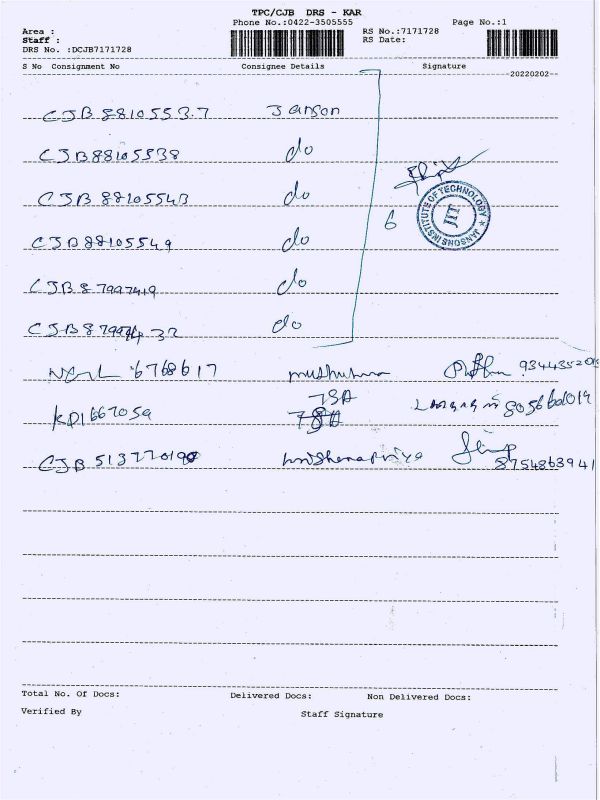 TPC/CJB DRS - KAR
Phone No.:0422-3505555 Page No.:1
Area : RS No.:7171728
Staff : RS Date:
DRS No. :DCJB7171728
S No Consignment No Consignee Details Signature
20220202
CJB 88105537 Janson
CJB88105538 do
CJB 88105543 do
JANSONS INSTITUTE OF TECHNOLOGY
JIT
6
CJB88105549 do
CJB 87997419 do
CJB 32 do
6768617
78A
KP1667059 78A
CJB 513770190 krishenapriya 8754863941
Total No. Of Docs: Delivered Docs: Non Delivered Docs:
Verified By Staff Signature